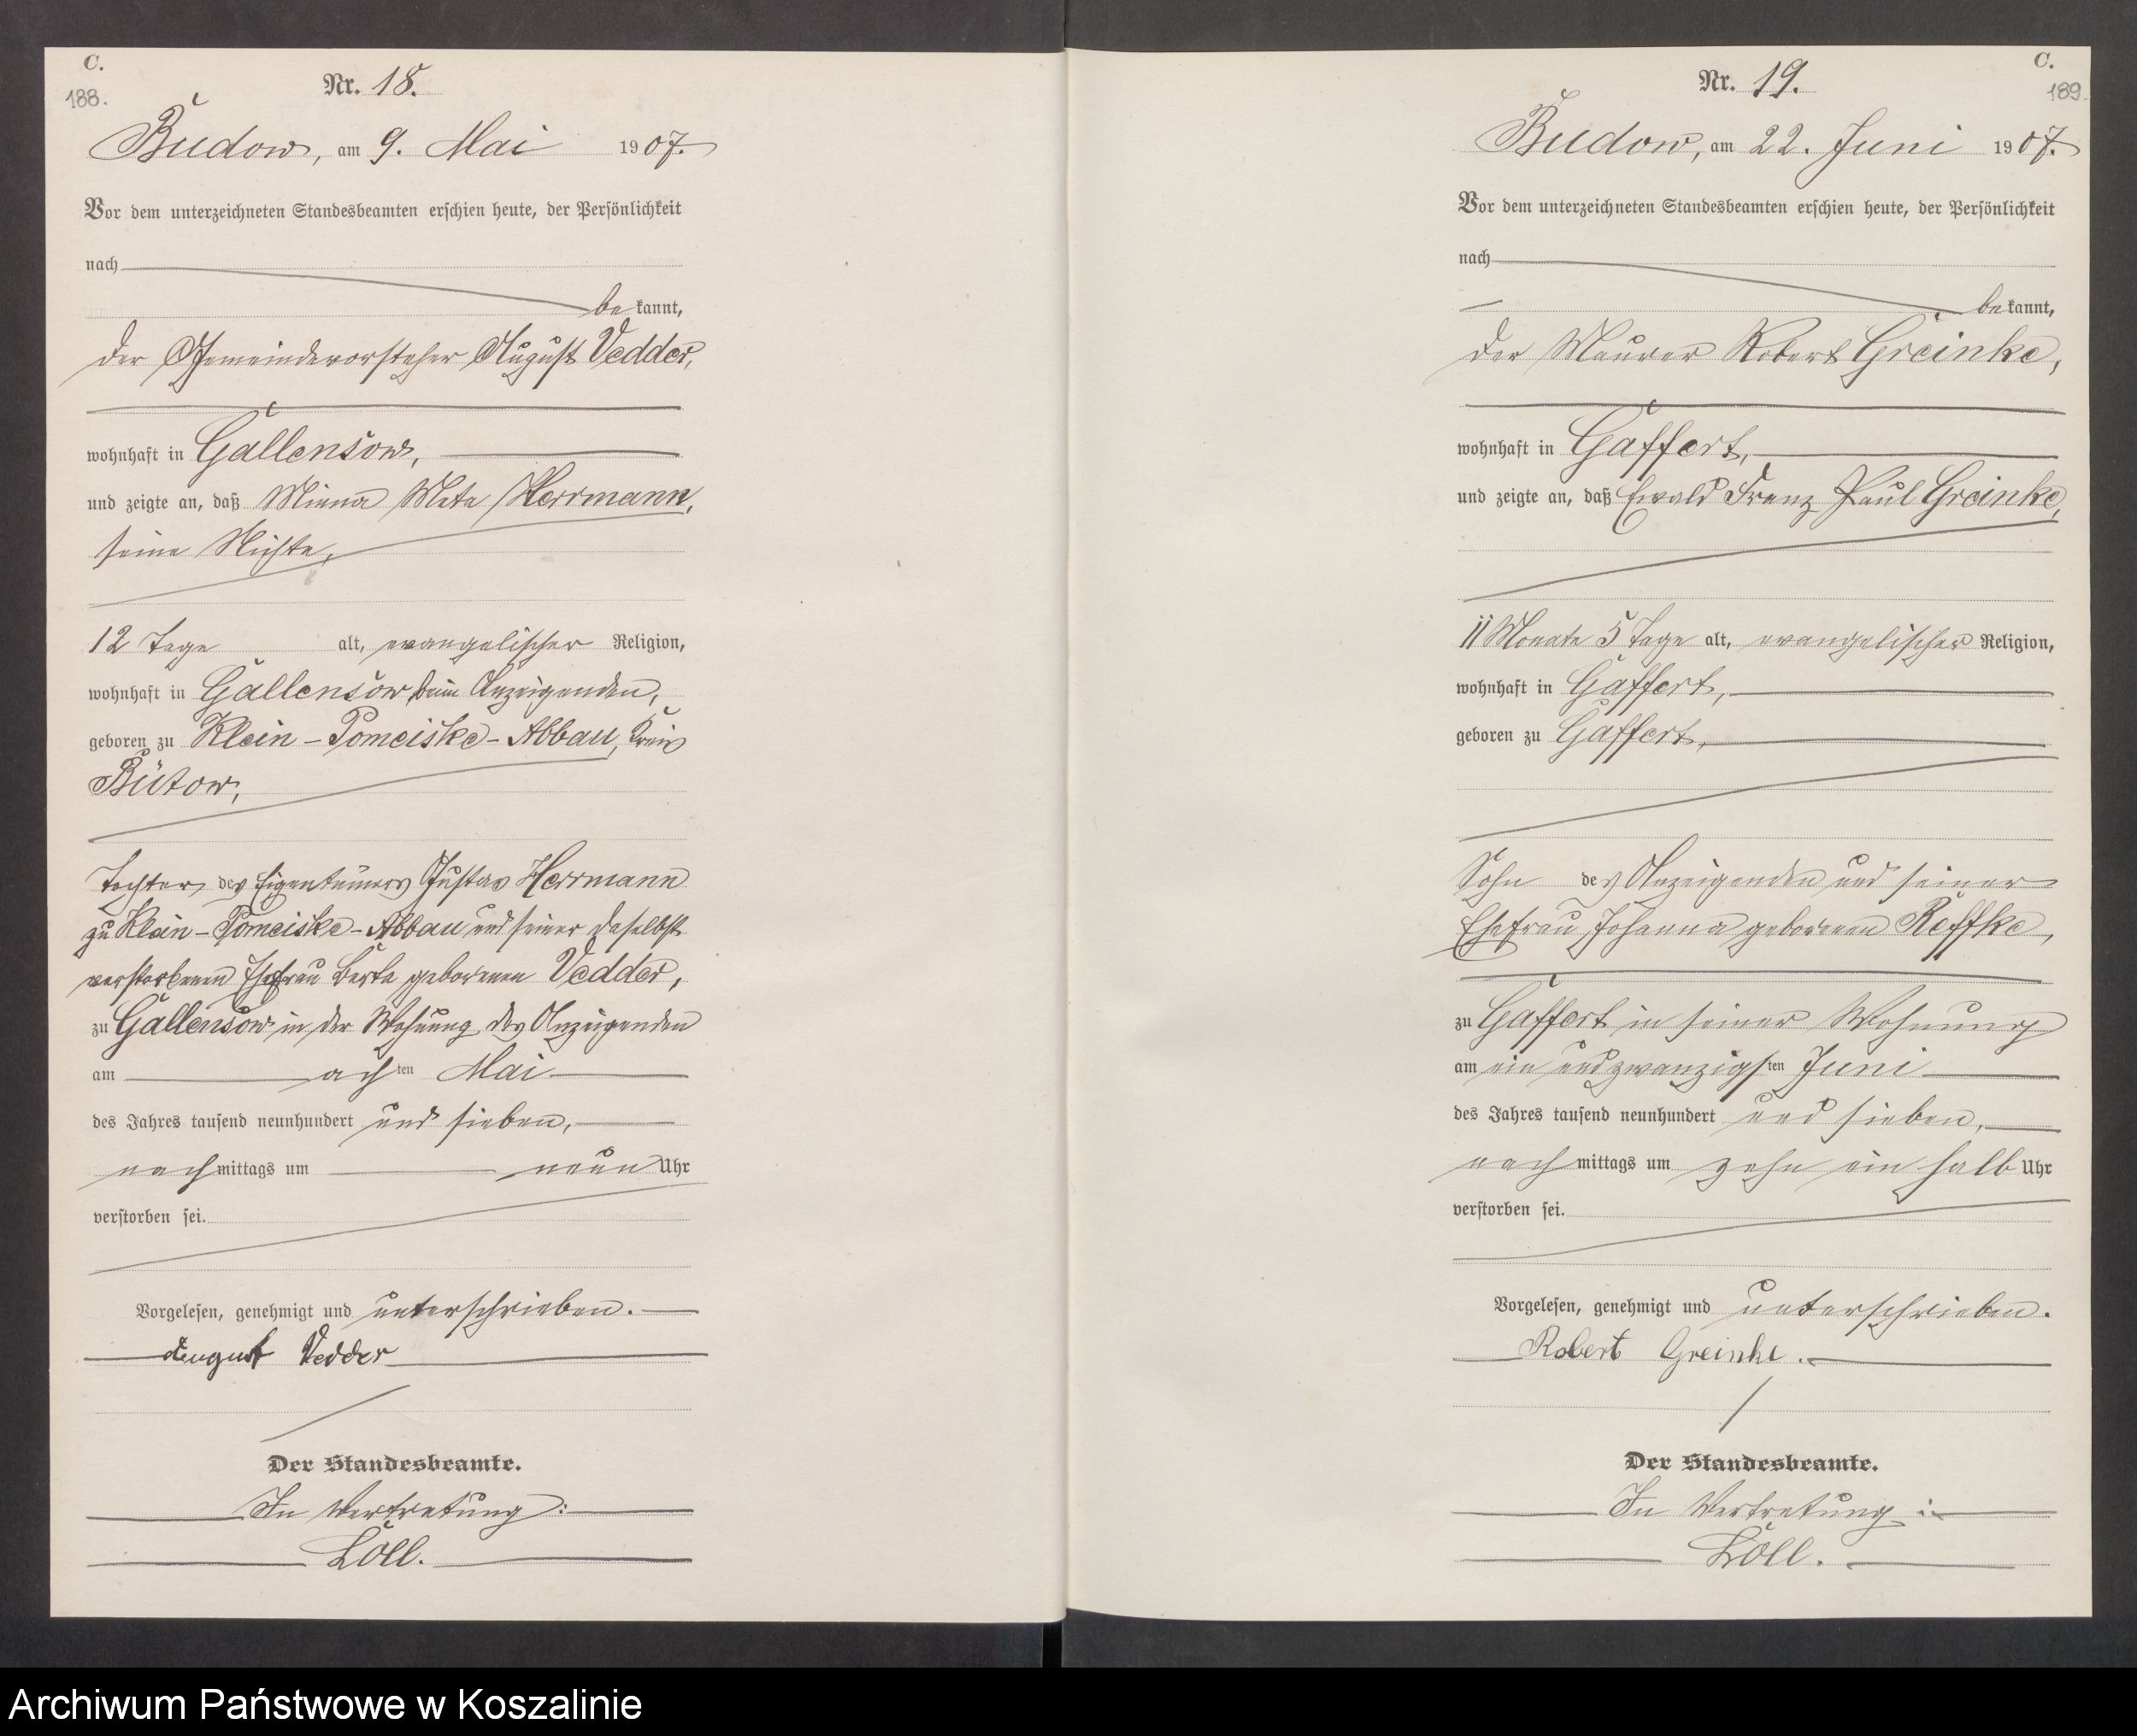 C.
188.
Nr. 18.
Budow, am 9. Mai 1907.
Vor dem unterzeichneten Standesbeamten erschien heute, der Persönlichkeit
nach
bekannt,
der Gemeindevorsteher August Vedder,
wohnhaft in Gallensow,
und zeigte an, daß Minna Meta Herrmann,
seine Nichte,
12 Tage alt, evangelischer Religion,
wohnhaft in Gallensow, beim Anzeigenden,
geboren zu Klein-Pomeiske-Abbau, Kreis
Bütow,
Tochter des Eigentümers Gustav Herrmann
zu Klein-Pomeiske-Abbau und seiner daselbst
verstorbenen Ehefrau Berta geborenen Vedder,
zu Gallensow in der Wohnung des Anzeigenden
am achten Mai
des Jahres tausend neunhundert und sieben,
nachmittags um neun Uhr
verstorben sei.
Vorgelesen, genehmigt und unterschrieben.
August Vedder
Der Standesbeamte.
In Vertretung:
Löll.
C.
189.
Nr. 19.
Budow, am 22. Juni 1907.
Vor dem unterzeichneten Standesbeamten erschien heute, der Persönlichkeit
nach
bekannt,
der Maurer Robert Greinke,
wohnhaft in Gaffert,
und zeigte an, daß Ewald Franz Paul Greinke,
11 Monate 5 Tage alt, evangelischer Religion,
wohnhaft in Gaffert,
geboren zu Gaffert,
Sohn des Anzeigenden und seiner
Ehefrau Johanna geborenen Reffke,
zu Gaffert in seiner Wohnung
am ein und zwanzigsten Juni
des Jahres tausend neunhundert und sieben,
nachmittags um zehn ein halb Uhr
verstorben sei.
Vorgelesen, genehmigt und unterschrieben.
Robert Greinke.
Der Standesbeamte.
In Vertretung:
Löll.
Archiwum Państwowe w Koszalinie